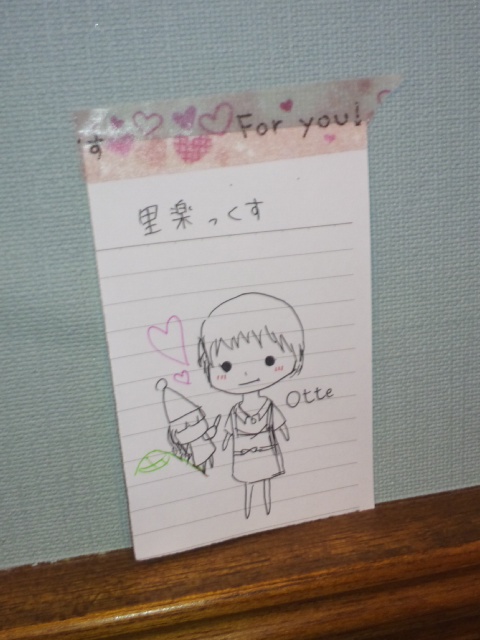 For you!
す
里楽っくす
Otte